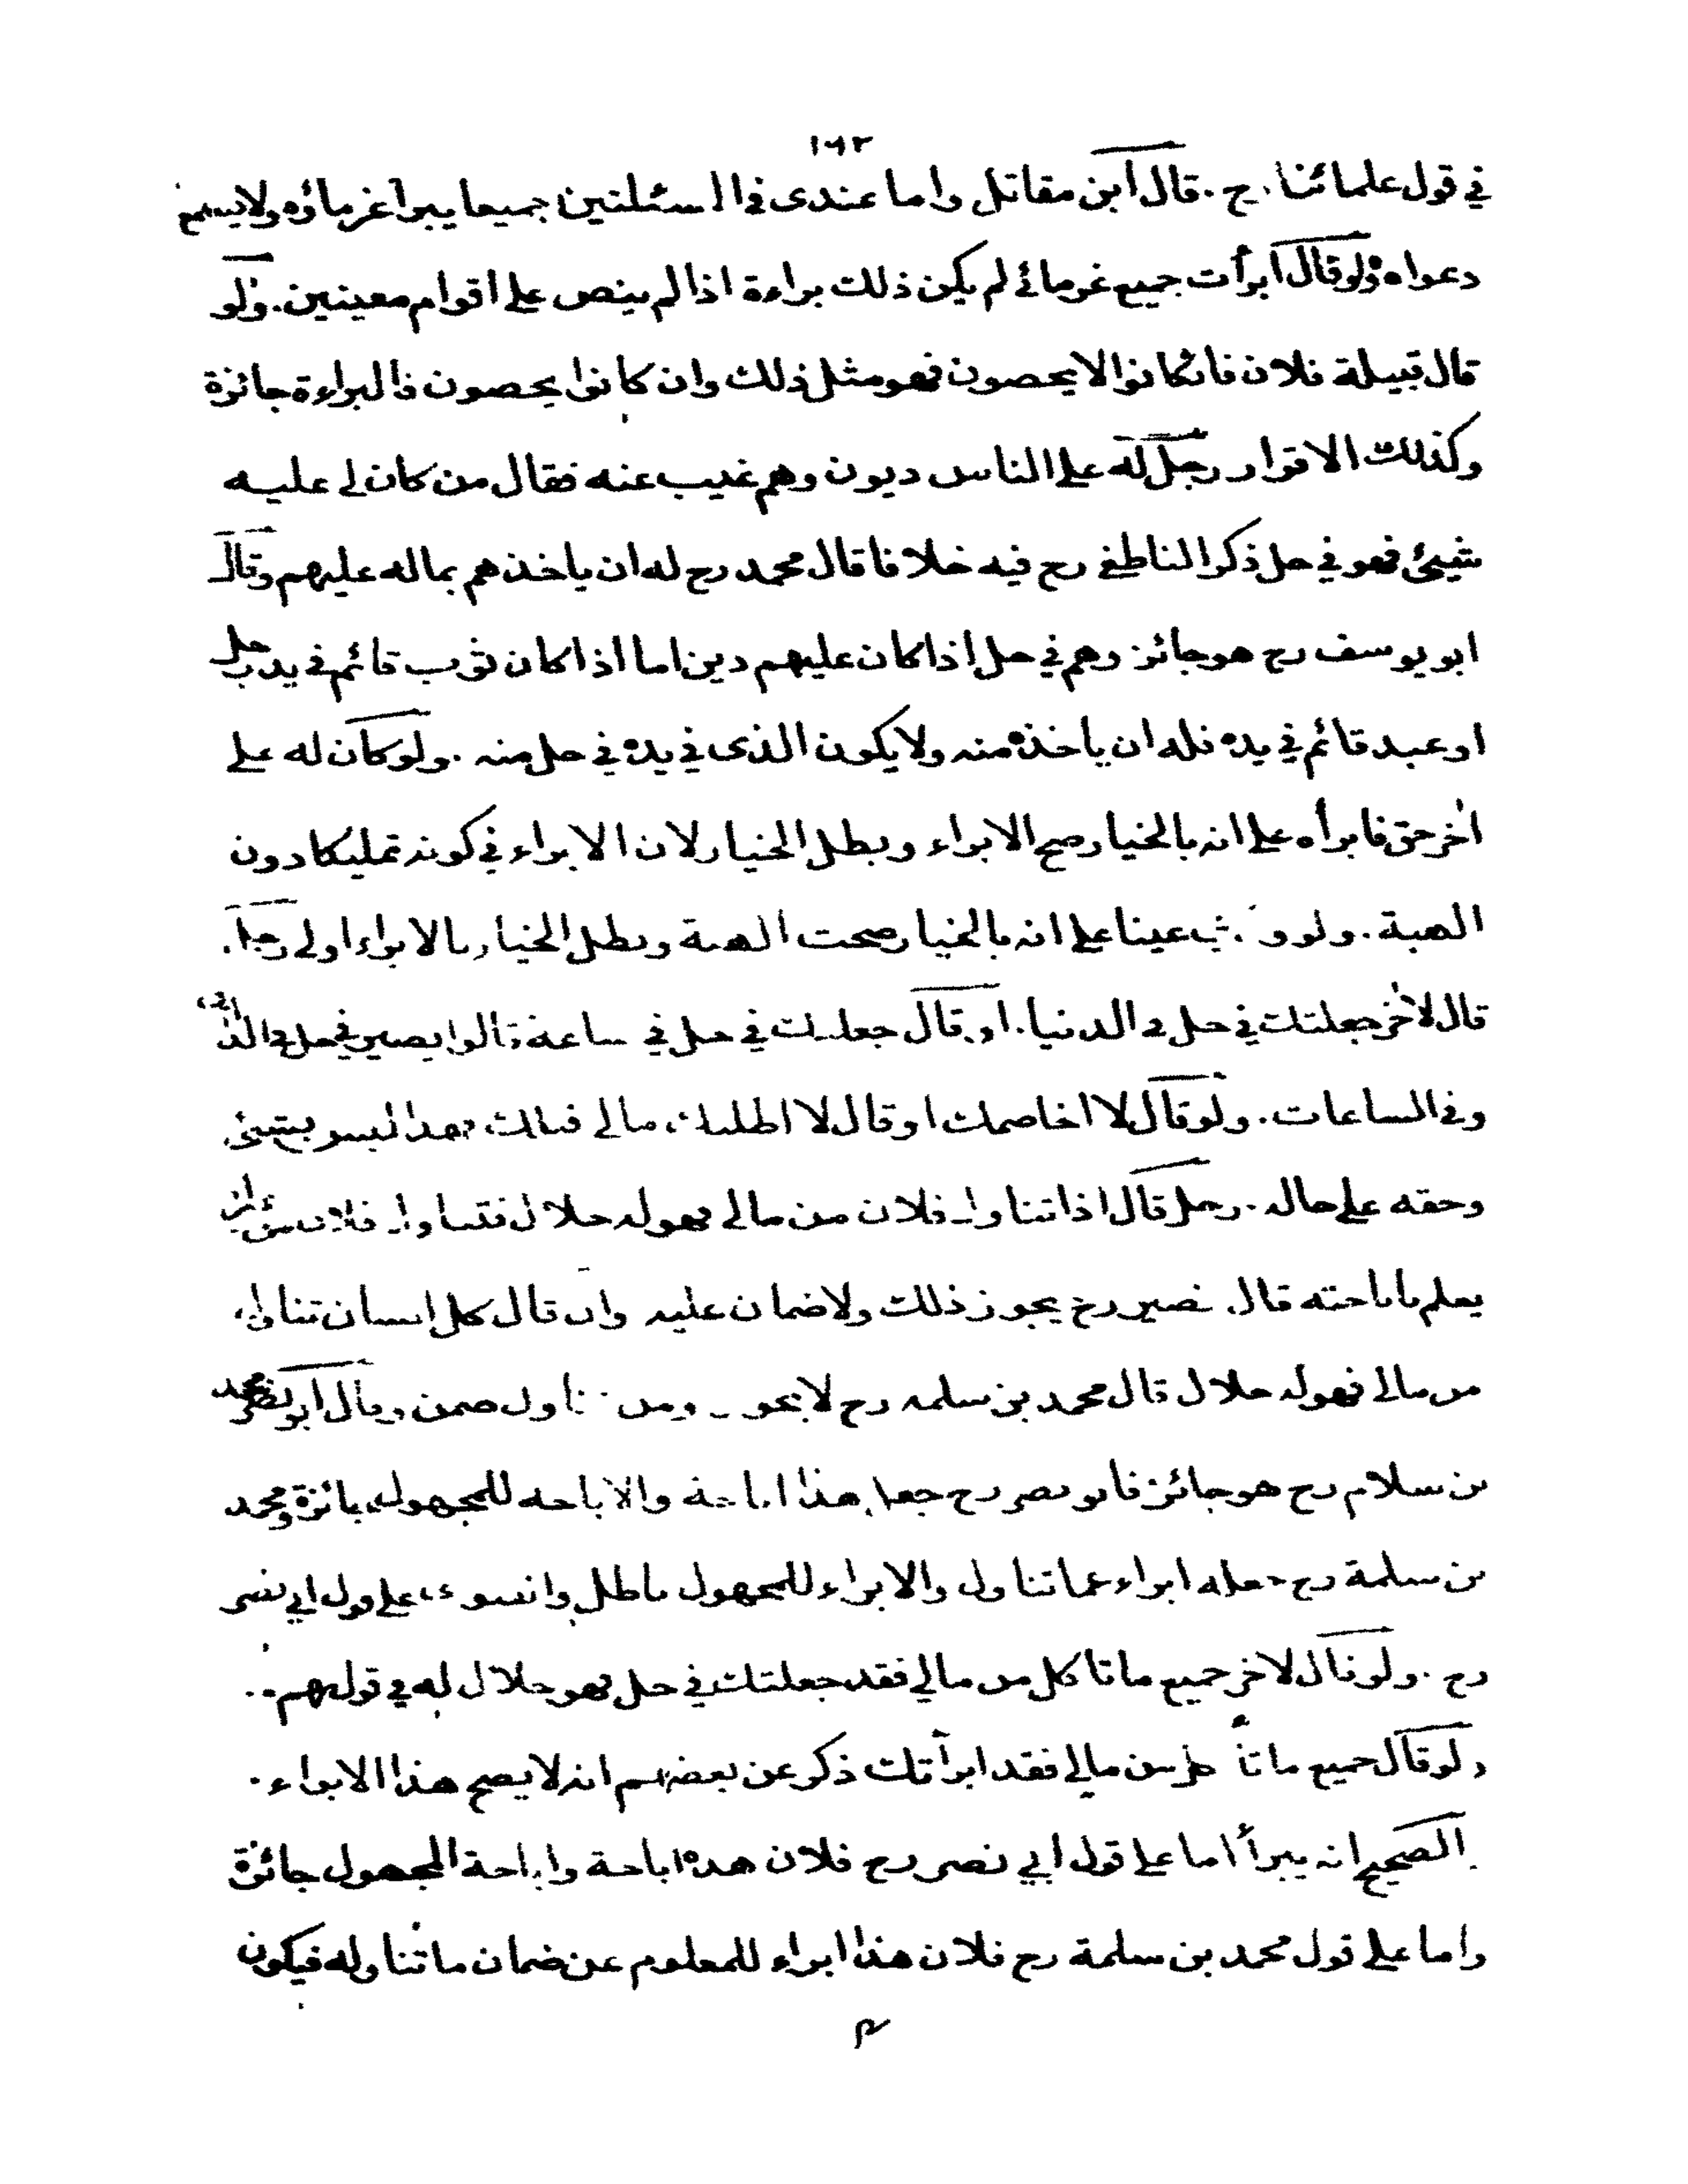 ١٦٢
في قول علمائنا رح . قال ابن مقاتل واما عندى في المسئلتين جميعا يبرأ غرماؤه ولا يسمع
دعواه ولو قال ابرأت جميع غرمائي لم يكن ذلك براءة اذا لم ينص على اقوام معينين . ولو
قال قبيلة فلان فان كانوا لا يحصون فهو مثل ذلك وان كانوا يحصون فالبراءة جائزة
وكذلك الاقرار رجل له على الناس ديون وهم غيب عنه فقال من كان لي عليه
شيئ فهو في حل ذكر الناطفي رح فيه خلافا قال محمد رح له ان ياخذهم بماله عليهم وقال
ابو يوسف رح هو جائز وهم في حل اذا كان عليهم دين اما اذا كان ثوب قائم في يد رجل
او عبد قائم في يده فله ان يأخذه منه ولا يكون الذى في يده في حل منه . ولو كان له على
اخر حق فابرأه على انه بالخيار صح الابراء وبطل الخيار لان الابراء في كونه تمليكا دون
الهبة . ولو وهب عينا على انه بالخيار صحت الهبة وبطل الخيار بالابراء اولى رجل
قال لاخر جعلتك في حل في الدنيا . او قال جعلتك في حل في ساعة قالوا يصير في حل في الدارين
وفي الساعات . ولو قال لا اخاصمك او قال لا اطلبك مالي قبلك فهذا ليس بشيئ
وحقه على حاله . رجل قال اذا تناول فلان من مالي فهو له حلال فتناول فلان من غير ان
يعلم باباحته قال نصير رح يجوز ذلك ولا ضمان عليه وان قال كل انسان تناول
من مالي فهو له حلال قال محمد بن سلمه رح لا يجوز ومن تناول ضمن وقال ابو نصر محمد
بن سلام رح هو جائز فابو نصر رح جعل هذا اباحة والاباحه للمجهول جائزة ومحمد
بن سلمة رح جعله ابراء عما تناول والابراء للمجهول باطل والفتوى على قول ابي نصر
رح . ولو قال لاخر جميع ما تاكل من مالي فقد جعلتك في حل فهو حلال له في قولهم .
ولو قال جميع ما تأكل من مالي فقد ابرأتك ذكر عن بعضهم انه لا يصح هذا الابراء .
الصحيح انه يبرأ اما على قول ابي نصر رح فلان هذه اباحة واباحة المجهول جائزة
واما على قول محمد بن سلمة رح فلان هذا ابراء للمعلوم عن ضمان ما تناوله فيكون